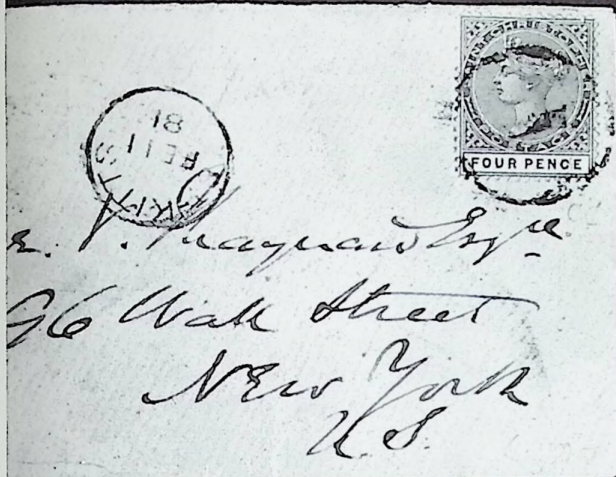 FOUR PENCE
81
FE 19
Esqre
96 Wall Street
New York
U.S.